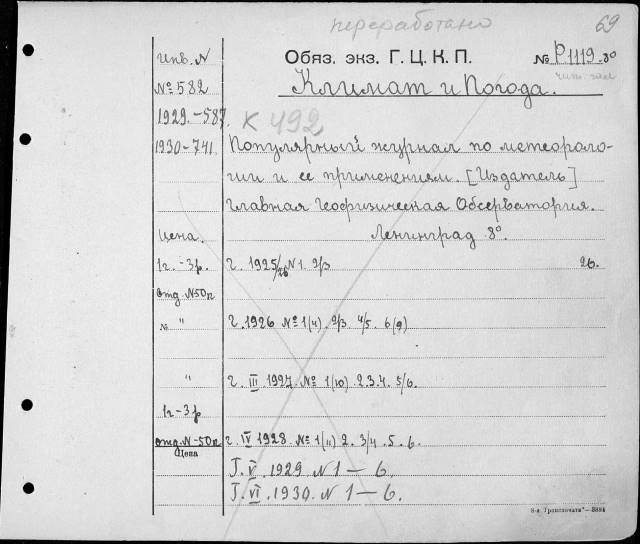 переработано
69
Инв. N
Обяз. экз. Г. Ц. К. П.
№ Р1119.8º
чит. зал
№ 582
Климат и Погода.
1929.-587.
К 492
1930-741.
Популярный журнал по метеороло-
гии и ее применениям. [Издатель]
Главная Геофизическая Обсерватория.
Цена.
Ленинград 8º.
1г.-3р.
г. 1925/26 N 1. 2/3
26.
отд. N50п
г. 1926 № 1(4). 2/3. 4/5. 6(9)
№ "
"
г. III 1927. № 1(10). 2.3.4. 5/6.
1г-3р
отд. N-50п
г. IV 1928. № 1(11) 2. 3/4. 5. 6.
Цена
Г. V. 1929 N 1 — 6.
Г. VI. 1930. N 1 — 6.
8-я Транспечати"—3884